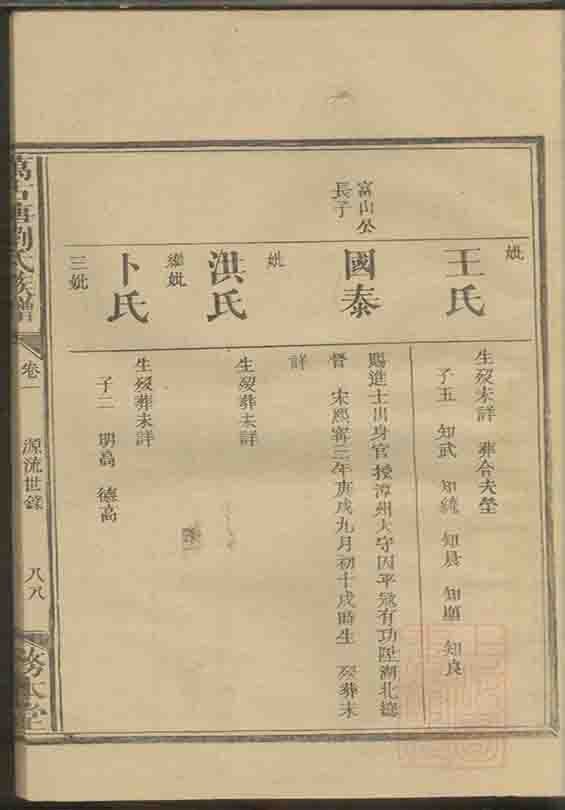 妣
王氏
生歿未詳 葬合夫塋
子五 知武 知繞 知晨 知 知良
富山公
長子
國泰
賜進士出身官授漳州大守因平寇有功陞湖北總
督 宋熙寧三年庚戌九月初十戌時生 歿葬未
詳
妣
洪氏
生歿葬未詳
繼妣
卜氏
生歿葬未詳
子二 明高 德高
三妣
萬石 劉氏族譜
卷一
源流世錄
八八
務本堂